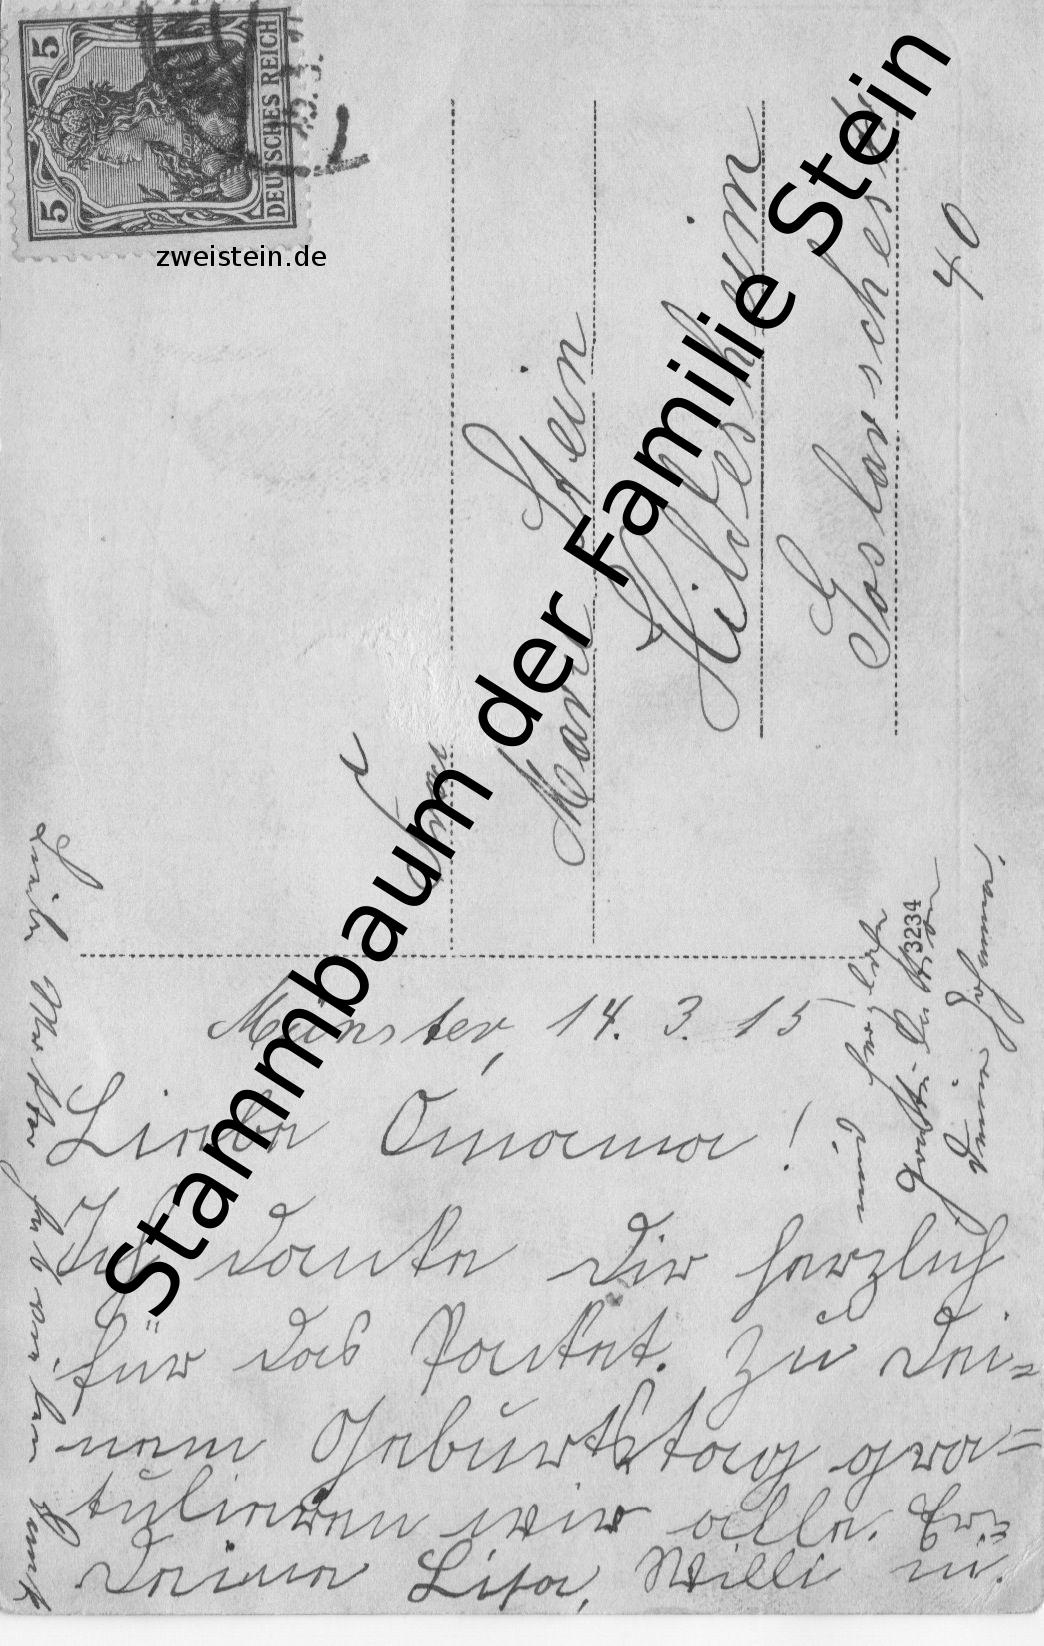 5
5
DEUTSCHES REICH
zweistein.de
Stammbaum der Familie Stein
Frau
Marie Stein
Hildesheim
Goslarschestr
40
3234
Münster, 14. 3. 15
Liebe Omama!
Ich danke Dir herzlich
für das Paket. Zu Dei=
nem Geburtstag gra=
tulieren wir alle.
Deine Lisa, Willi u.
Liebe Mutter hab vielen Dank
und herzliche
Deine Johanna.